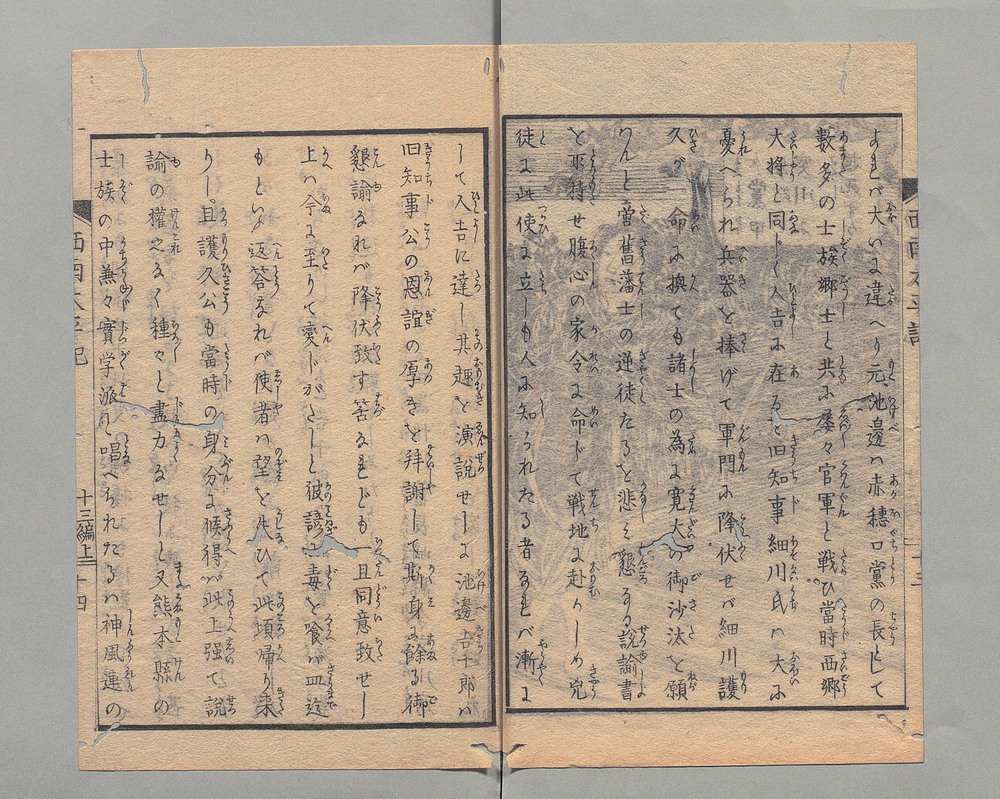 よれバ大いに違へり元池邊ハ赤穂口黨の長として
數多の士族郷士と共に屡々官軍と戦ひ當時西郷
大将と同じく人吉に在ると旧知事細川氏ハ大に
憂へられ兵器を捧げて軍門に降伏せバ細川護
久が命に換ても諸士の為に寛大の御沙汰を願
りんと曽舊藩士の逆徒たるを悲み懇なる説諭書
を平持せ腹心の家令に命じて戦地に赴かしめ兇
徒に此使に立しも人に知られたる者なれバ漸に
して人吉に達し其趣を演説せしに池邊吉十郎ハ
旧知事公の恩誼の厚きを拝謝して斯身に餘る御
懇諭なれバ降伏致す筈なれども一旦同意致せし
上ハ今に至りて変じがたしと彼諺に毒を喰ハ皿迄
もといふ返答なれバ使者ハ望を失ひて此頃帰り来
りし且護久公も當時の身分に候得バ此上強て説
諭の權之なく種々と盡力なせしと又熊本縣の
士族の中無々實学派と唱へられたるハ神風連の
西南太平記
十三編上
十四